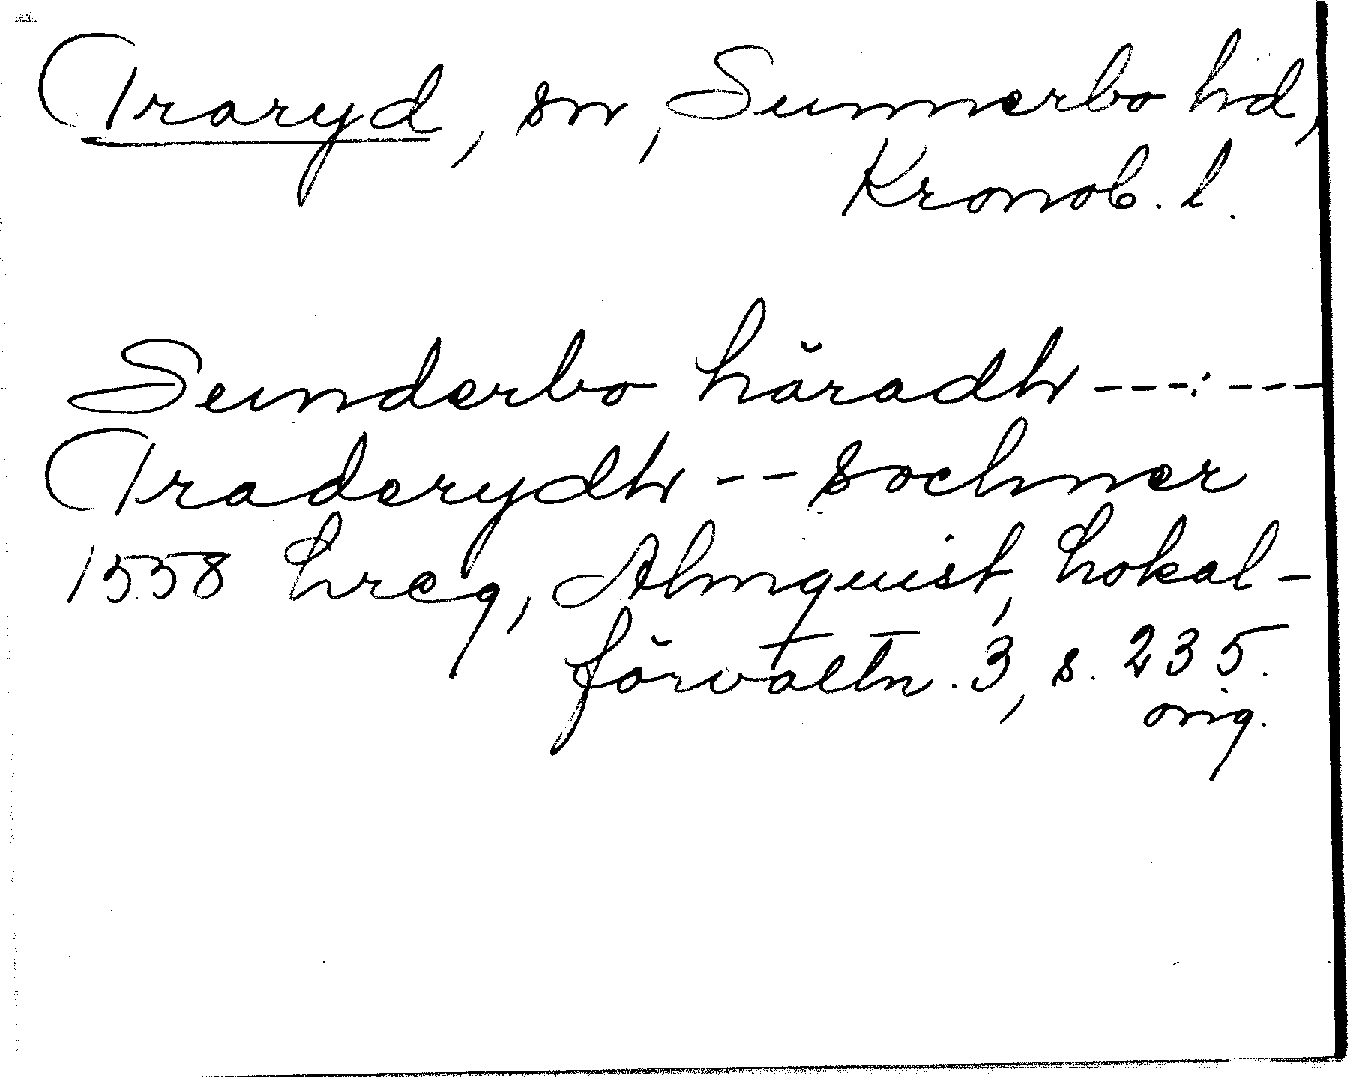 Traryd, sn, Sunnerbo hd,
Kronob. l.
Sunderbo häradh ---:---
Traderydh -- sochner
1558 hreg, Almquist, Lokal-
förvaltn. 3, s. 235.
orig.